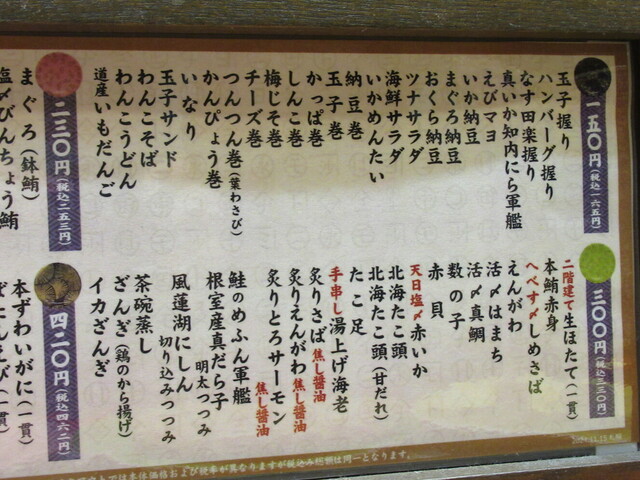 一五〇円(税込一六五円)
玉子握り
ハンバーグ握り
なす田楽握り
真いか知内にら軍艦
えびマヨ
いか納豆
まぐろ納豆
おくら納豆
ツナサラダ
海鮮サラダ
いかめんたい
納豆巻
玉子巻
かっぱ巻
しんこ巻
梅じそ巻
チーズ巻
つんつん巻(葉わさび)
かんぴょう巻
いなり
玉子サンド
わんこそば
わんこうどん
道産いもだんご
二三〇円(税込二五三円)
まぐろ(鉢鮪)
塩〆びんちょう鮪
三〇〇円(税込三三〇円)
二階建て生ほたて(一貫)
本鮪赤身
へべす〆しめさば
えんがわ
活〆はまち
活〆真鯛
数の子
赤貝
天日塩〆赤いか
北海たこ頭
北海たこ頭(甘だれ)
たこ足
手串し湯上げ海老
炙りさば焦し醤油
炙りえんがわ焦し醤油
炙りとろサーモン焦し醤油
鮭のめふん軍艦
根室産真だら子
明太つつみ
風蓮湖にしん
切り込みつつみ
茶碗蒸し
ざんぎ(鶏のから揚げ)
イカざんぎ
四二〇円(税込四六二円)
本ずわいがに(一貫)
(一貫)
本体価格および税率が異なりますが税込み総額は同一となります。